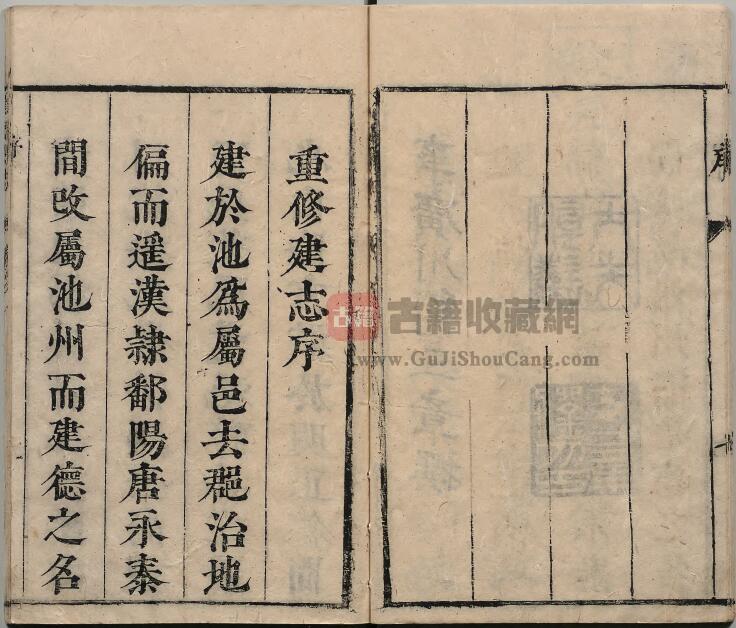 重修建志序
建於池爲屬邑去郡治地
偏而遥漢隷鄱陽唐永泰
間改屬池州而建德之名
序
古籍
古籍收藏網
www.GuJiShouCang.com